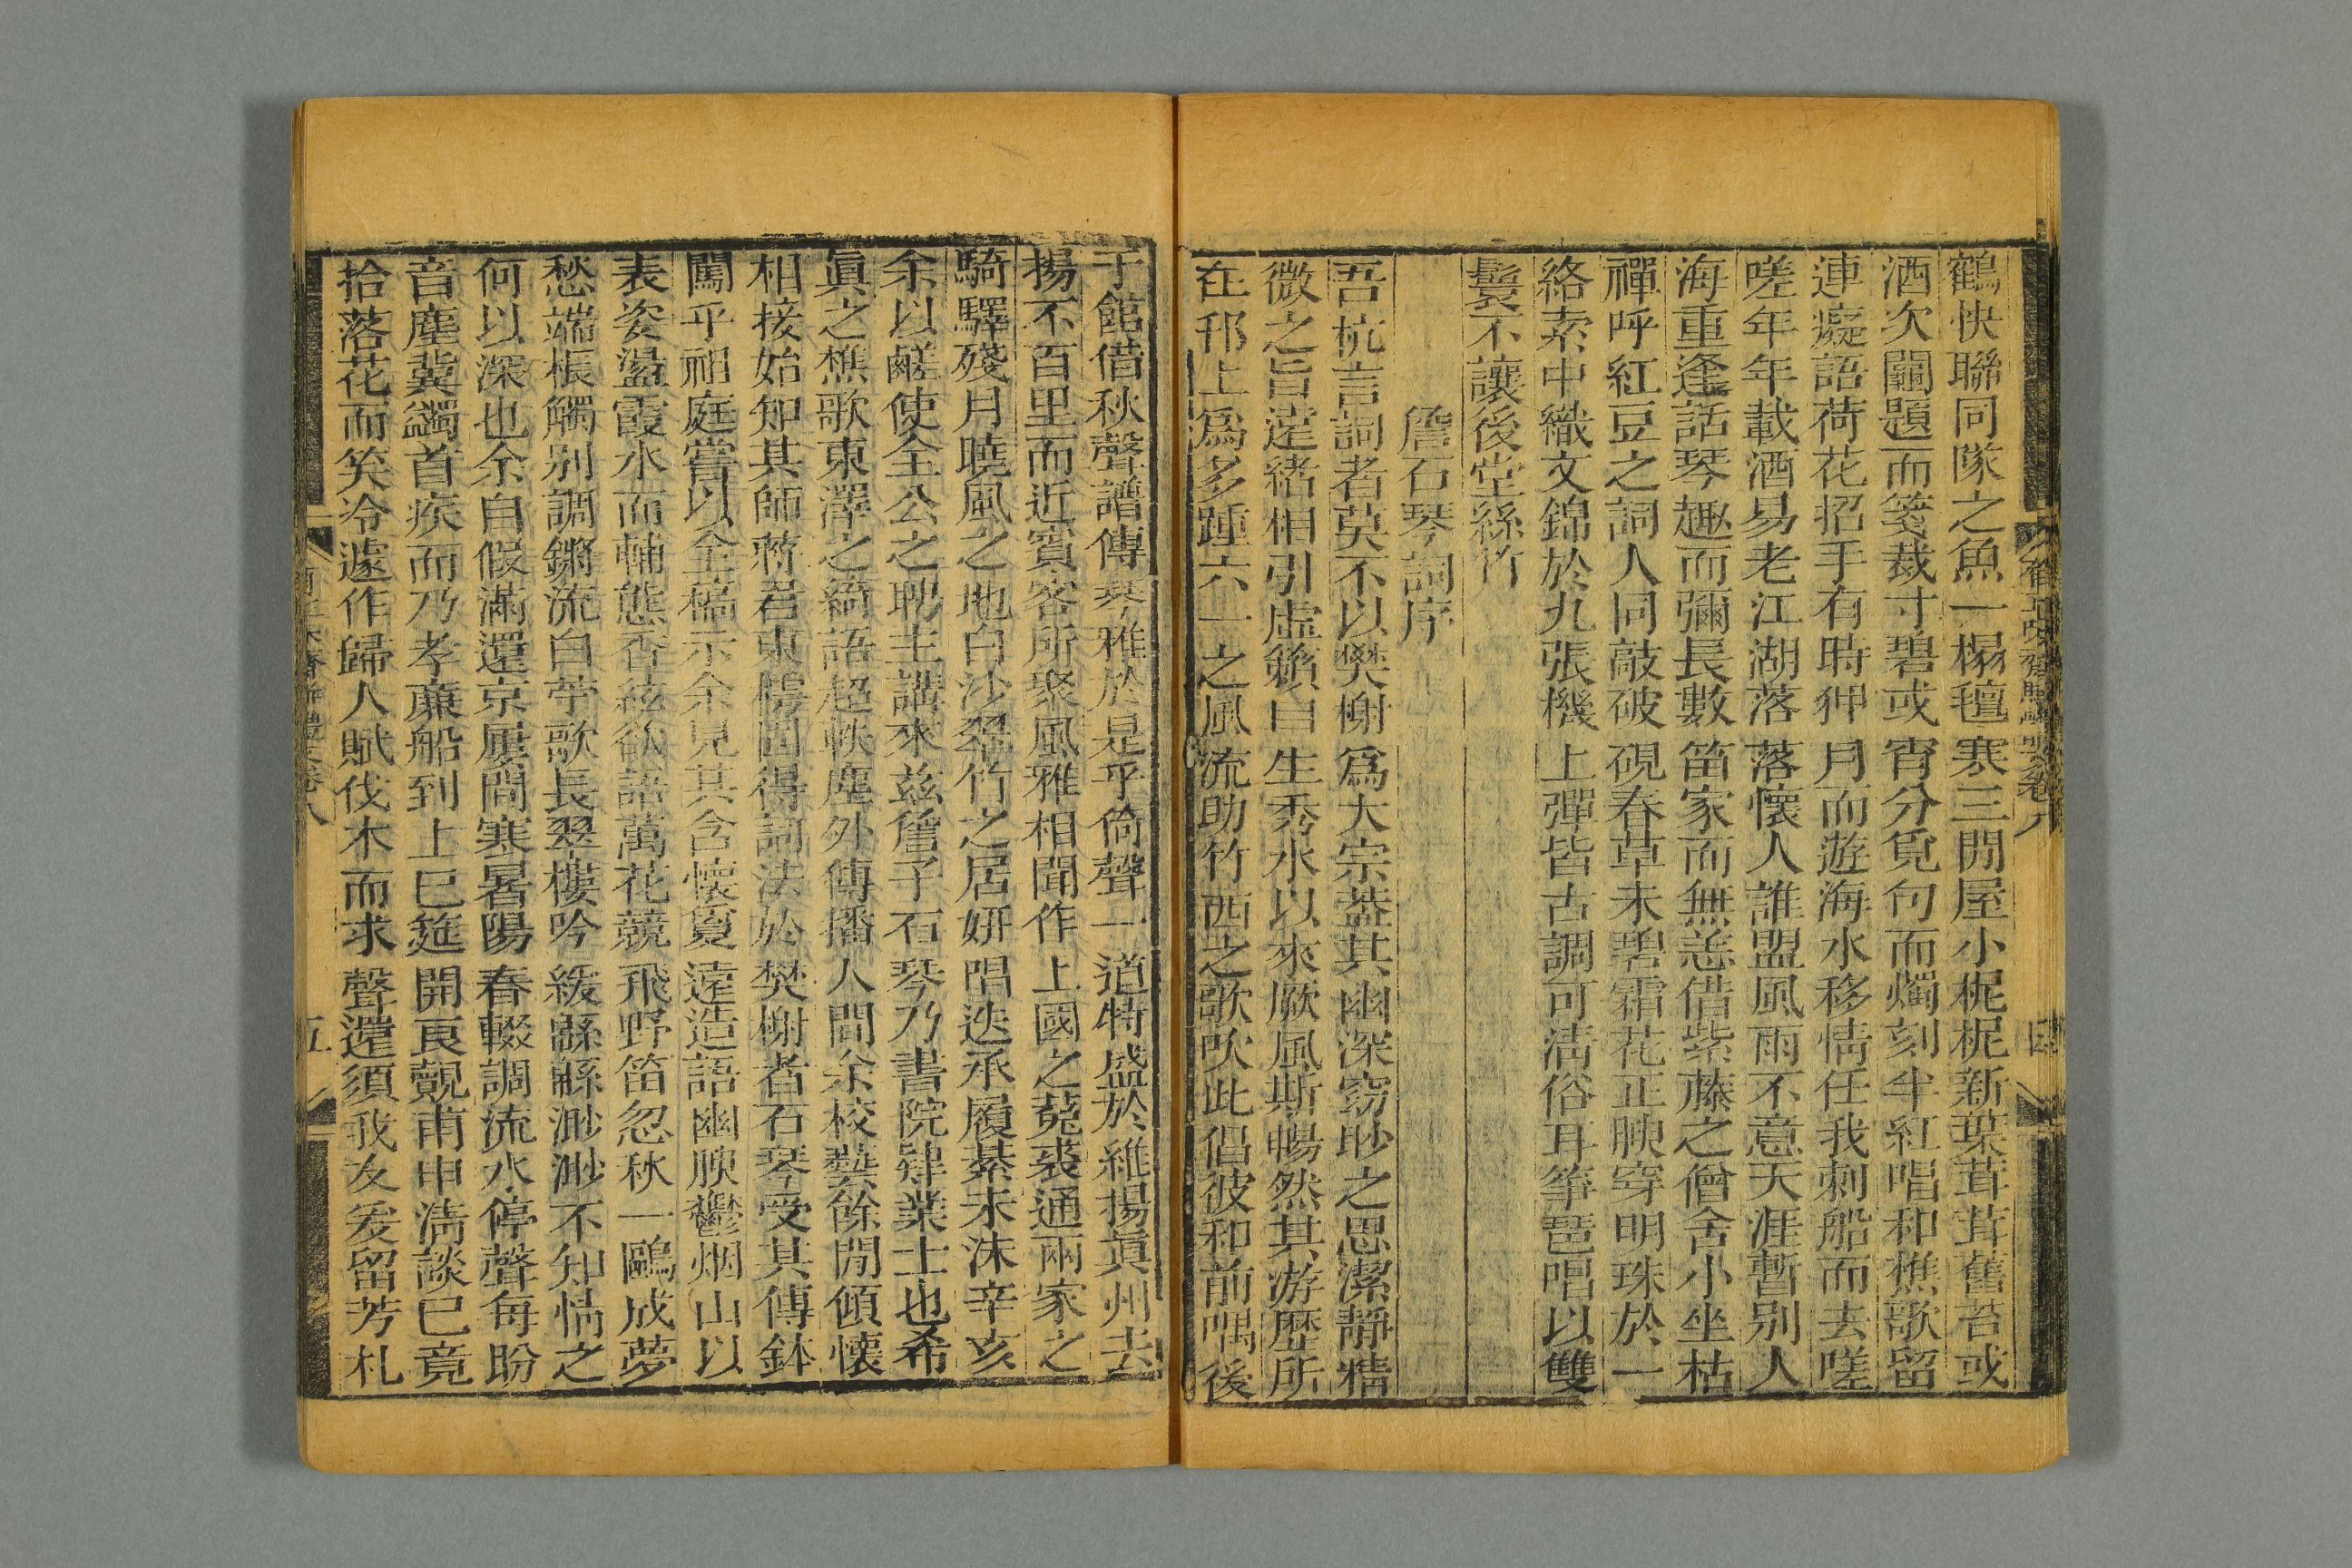 鶴快聯同隊之魚一榻氊寒三閒屋小柅柅新葉茸茸舊苔或
酒次鬮題而箋裁寸碧或宵分覓句而燭刻半紅唱和樵歌留
連癡語荷花招手有時狎月而遊海水移情任我刺船而去嗟
嗟年年載酒易老江湖落落懷人誰盟風雨不意天涯暫别人
海重逢話琴趣而彌長數笛家而無恙借紫藤之僧舍小坐枯
禪呼紅豆之詞人同敲破硯春草未碧霜花正腴穿明珠於一
絡索中織文錦於九張機上彈皆古調可淸俗耳筝琶唱以雙
鬟不讓後堂絲竹
詹石琴詞序
吾杭言詞者莫不以樊榭爲大宗葢其幽深窈眇之思潔靜精
微之旨遠緖相引虛籟自生秀水以來厥風斯暢然其游歷所
在邗上爲多踵六一之風流助竹西之歌吹此倡彼和前喁後
于館借秋聲譜傳琴雅於是乎倚聲一道特盛於維揚眞州去
揚不百里而近賓客所聚風雅相聞作上國之菟裘通兩家之
騎驛殘月曉風之地白沙翠竹之居姸唱迭承履綦未沬辛亥
余以鹺使全公之聘主講來兹詹子石琴乃書院肄業士也希
眞之樵歌東澤之綺語超軼塵外傳播人間余校藝餘閒傾懷
相接始知其師蔣君東橋固得詞法於樊榭者石琴受其傳鉢
闖乎祖庭嘗以全稿示余見其含懷夐遠造語幽腴鬱烟山以
表姿盪霞水而輔態香絃欲語萬花競飛野笛忽秋一鷗成夢
愁端棖觸别調鏘流白苧歌長翠樓吟緩緜緜渺渺不知情之
何以深也余自假滿還京屢閒寒暑陽春輟調流水停聲每盼
音塵冀蠲首疾而乃孝廉船到上巳筵開良覿甫申淸談已竟
拾落花而笑冷遽作歸人賦伐木而求聲還須我友爰留芳札